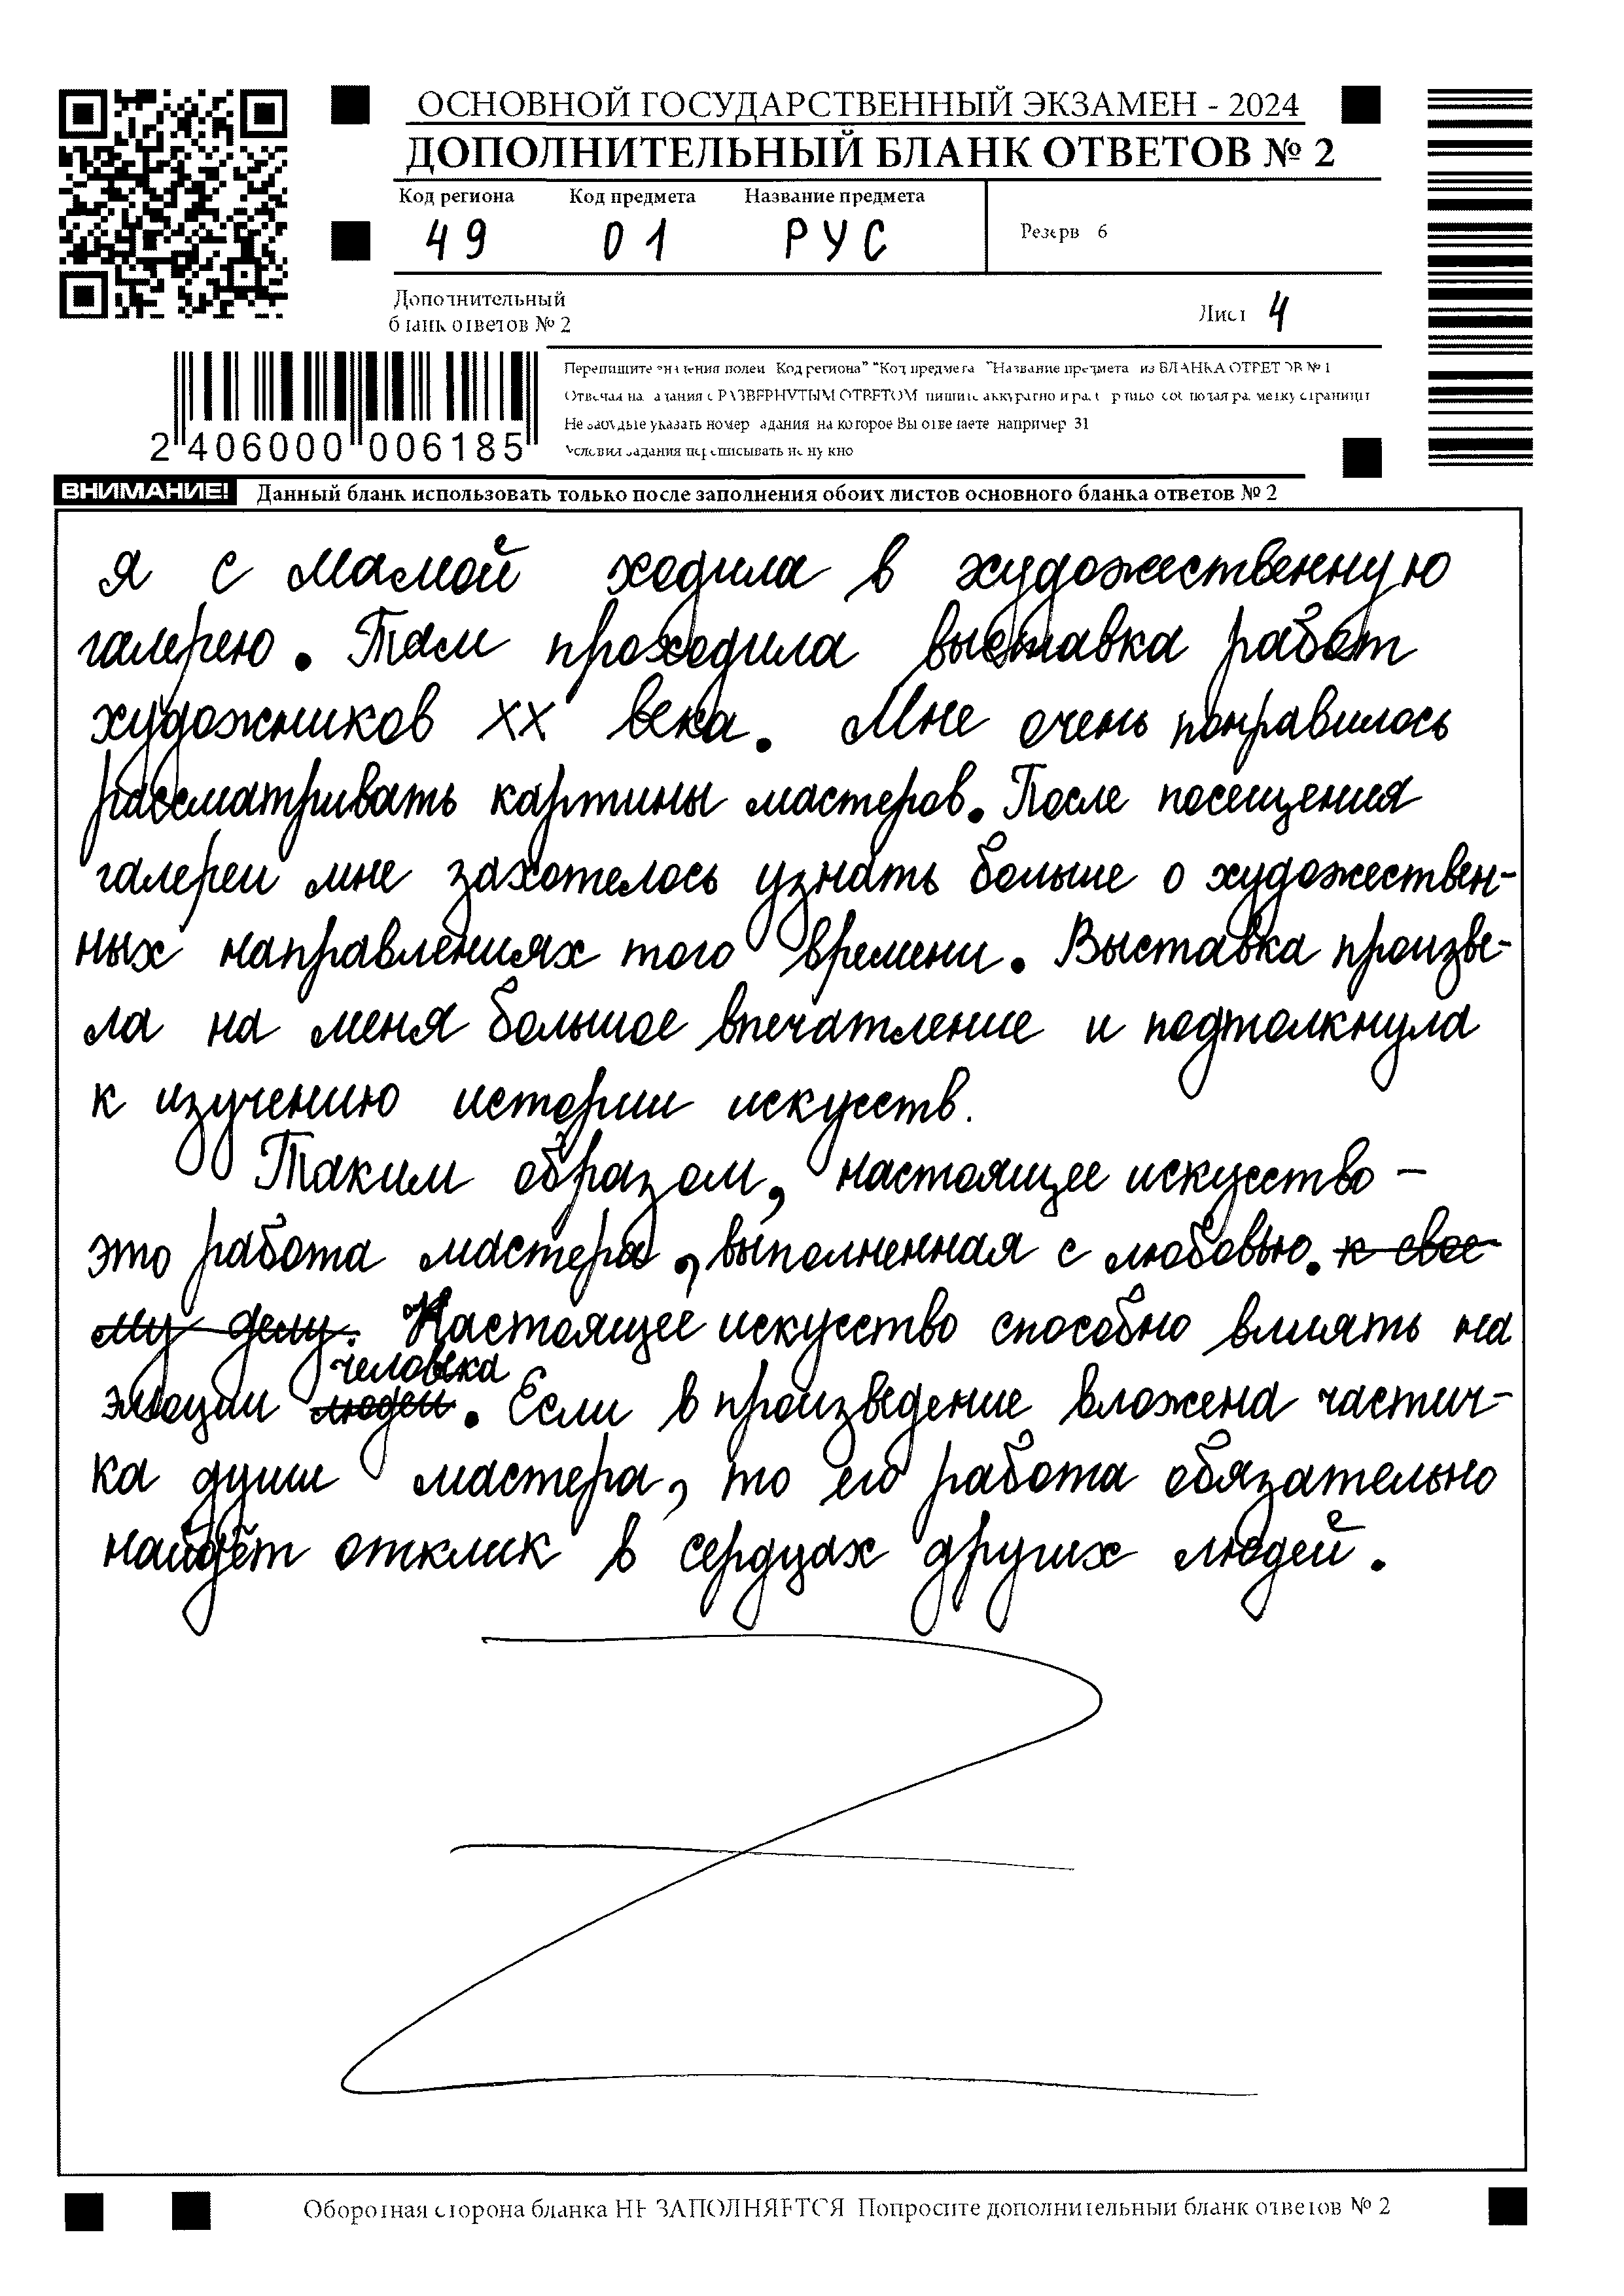 ОСНОВНОЙ ГОСУДАРСТВЕННЫЙ ЭКЗАМЕН - 2024
ДОПОЛНИТЕЛЬНЫЙ БЛАНК ОТВЕТОВ № 2
Код региона Код предмета Название предмета
49 01 РУС
Резерв 6
Дополнительный
бланк ответов № 2
Лист 4
Перепишите значения полей "Код региона" "Код предмета" "Название предмета" из БЛАНКА ОТВЕТОВ № 1
Отвечая на задания с РАЗВЕРНУТЫМ ОТВЕТОМ пишите аккуратно и разборчиво соблюдая разметку страницы
Не забудьте указать номер задания на которое Вы отвечаете например 31
Условия задания переписывать не нужно
2 406000 006185
ВНИМАНИЕ! Данный бланк использовать только после заполнения обоих листов основного бланка ответов № 2
я с мамой ходила в художественную
галерею. Там проходила выставка работ
художников XX века. Мне очень понравилось
рассматривать картины мастеров. После посещения
галереи мне захотелось узнать больше о художествен-
ных направлениях того времени. Выставка произве-
ла на меня большое впечатление и подтолкнула
к изучению истории искусств.
Таким образом, настоящее искусство -
это работа мастера, выполненная с любовью. к свое-
му делу. Настоящее искусство способно влиять на
человека
эмоции людей. Если в произведение вложена частич-
ка души мастера, то его работа обязательно
найдёт отклик в сердцах других людей.
Оборотная сторона бланка НЕ ЗАПОЛНЯЕТСЯ Попросите дополнительный бланк ответов № 2